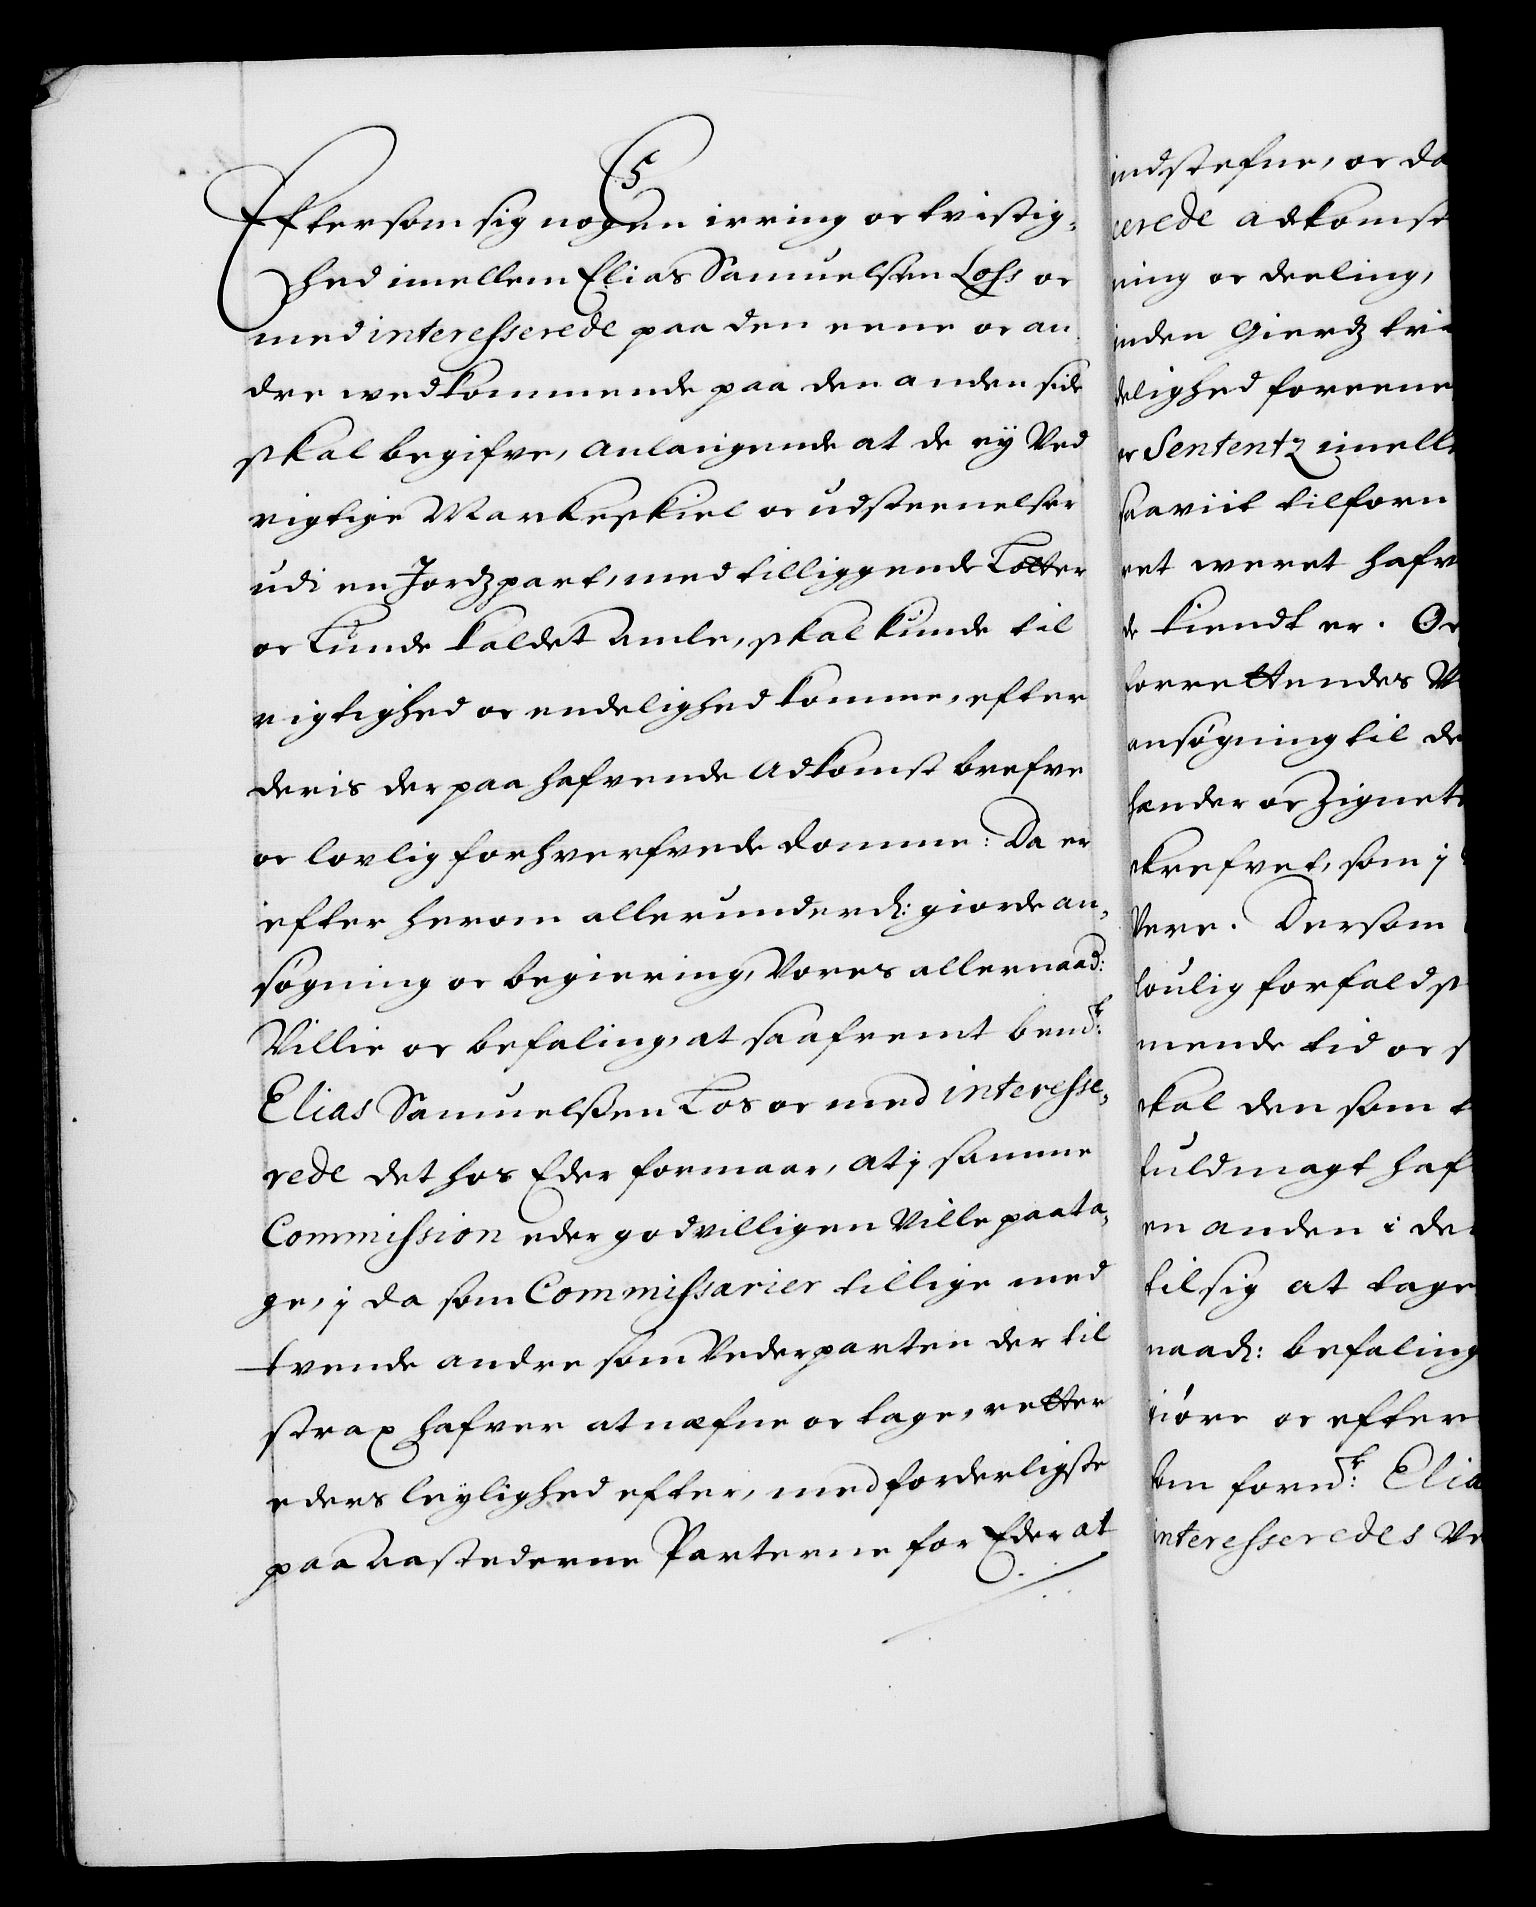 C5
Eftersom sig nogen irring oc tvistig,
hed imellem Elias Samuelsen Lohs oc
med interesserede paa den eene oc an
dre wedkommende paa den anden side
skal begifve, anlangende at de ej Ved
rigtige Markeskiel oc udsteenelser
udi en Jordpart, med tilliggende Lotter
oc Lunde kaldet Amle, skal kunde til
rigtighed oc endelighed komme, efter
deris der paa hafvende adkomst brefve
oc lovlig forhverfvede domme: Da er
efter herom allerunderd: giorde an,
søgning oc begiering, Vores allernaad:
Villie oc befaling, at saafremt bem.te
Elias Samuelssen Los oc med interesse,
rede det hos Eder formaar, at j samme
Commission eder godvilligen Ville paata,
ge, j da som Commissarier tillige med
tvende andre som Vederparten der til
strax hafver at nefne oc tage, retter
eders leylighed efter, med forderligste
paa Aastederne Parterne for Eder at
indstefne, oc da
cerede adkomst
ning oc deeling,
inden Gierd
delighed foreene
oc Sententz imell
saaviit tilforn
ret weret hafv
de kiendt er. Oc
forrettendes
ansøgning til de
hænder oc Zignet
skrefvet, som j
Vere. Dersom
loulig forfald
mende tid oc s
skal den som
fuldmagt haf
en anden i de
til sig at tage
naad: befaling
giøre oc efter
Elia
interesseredes Ve